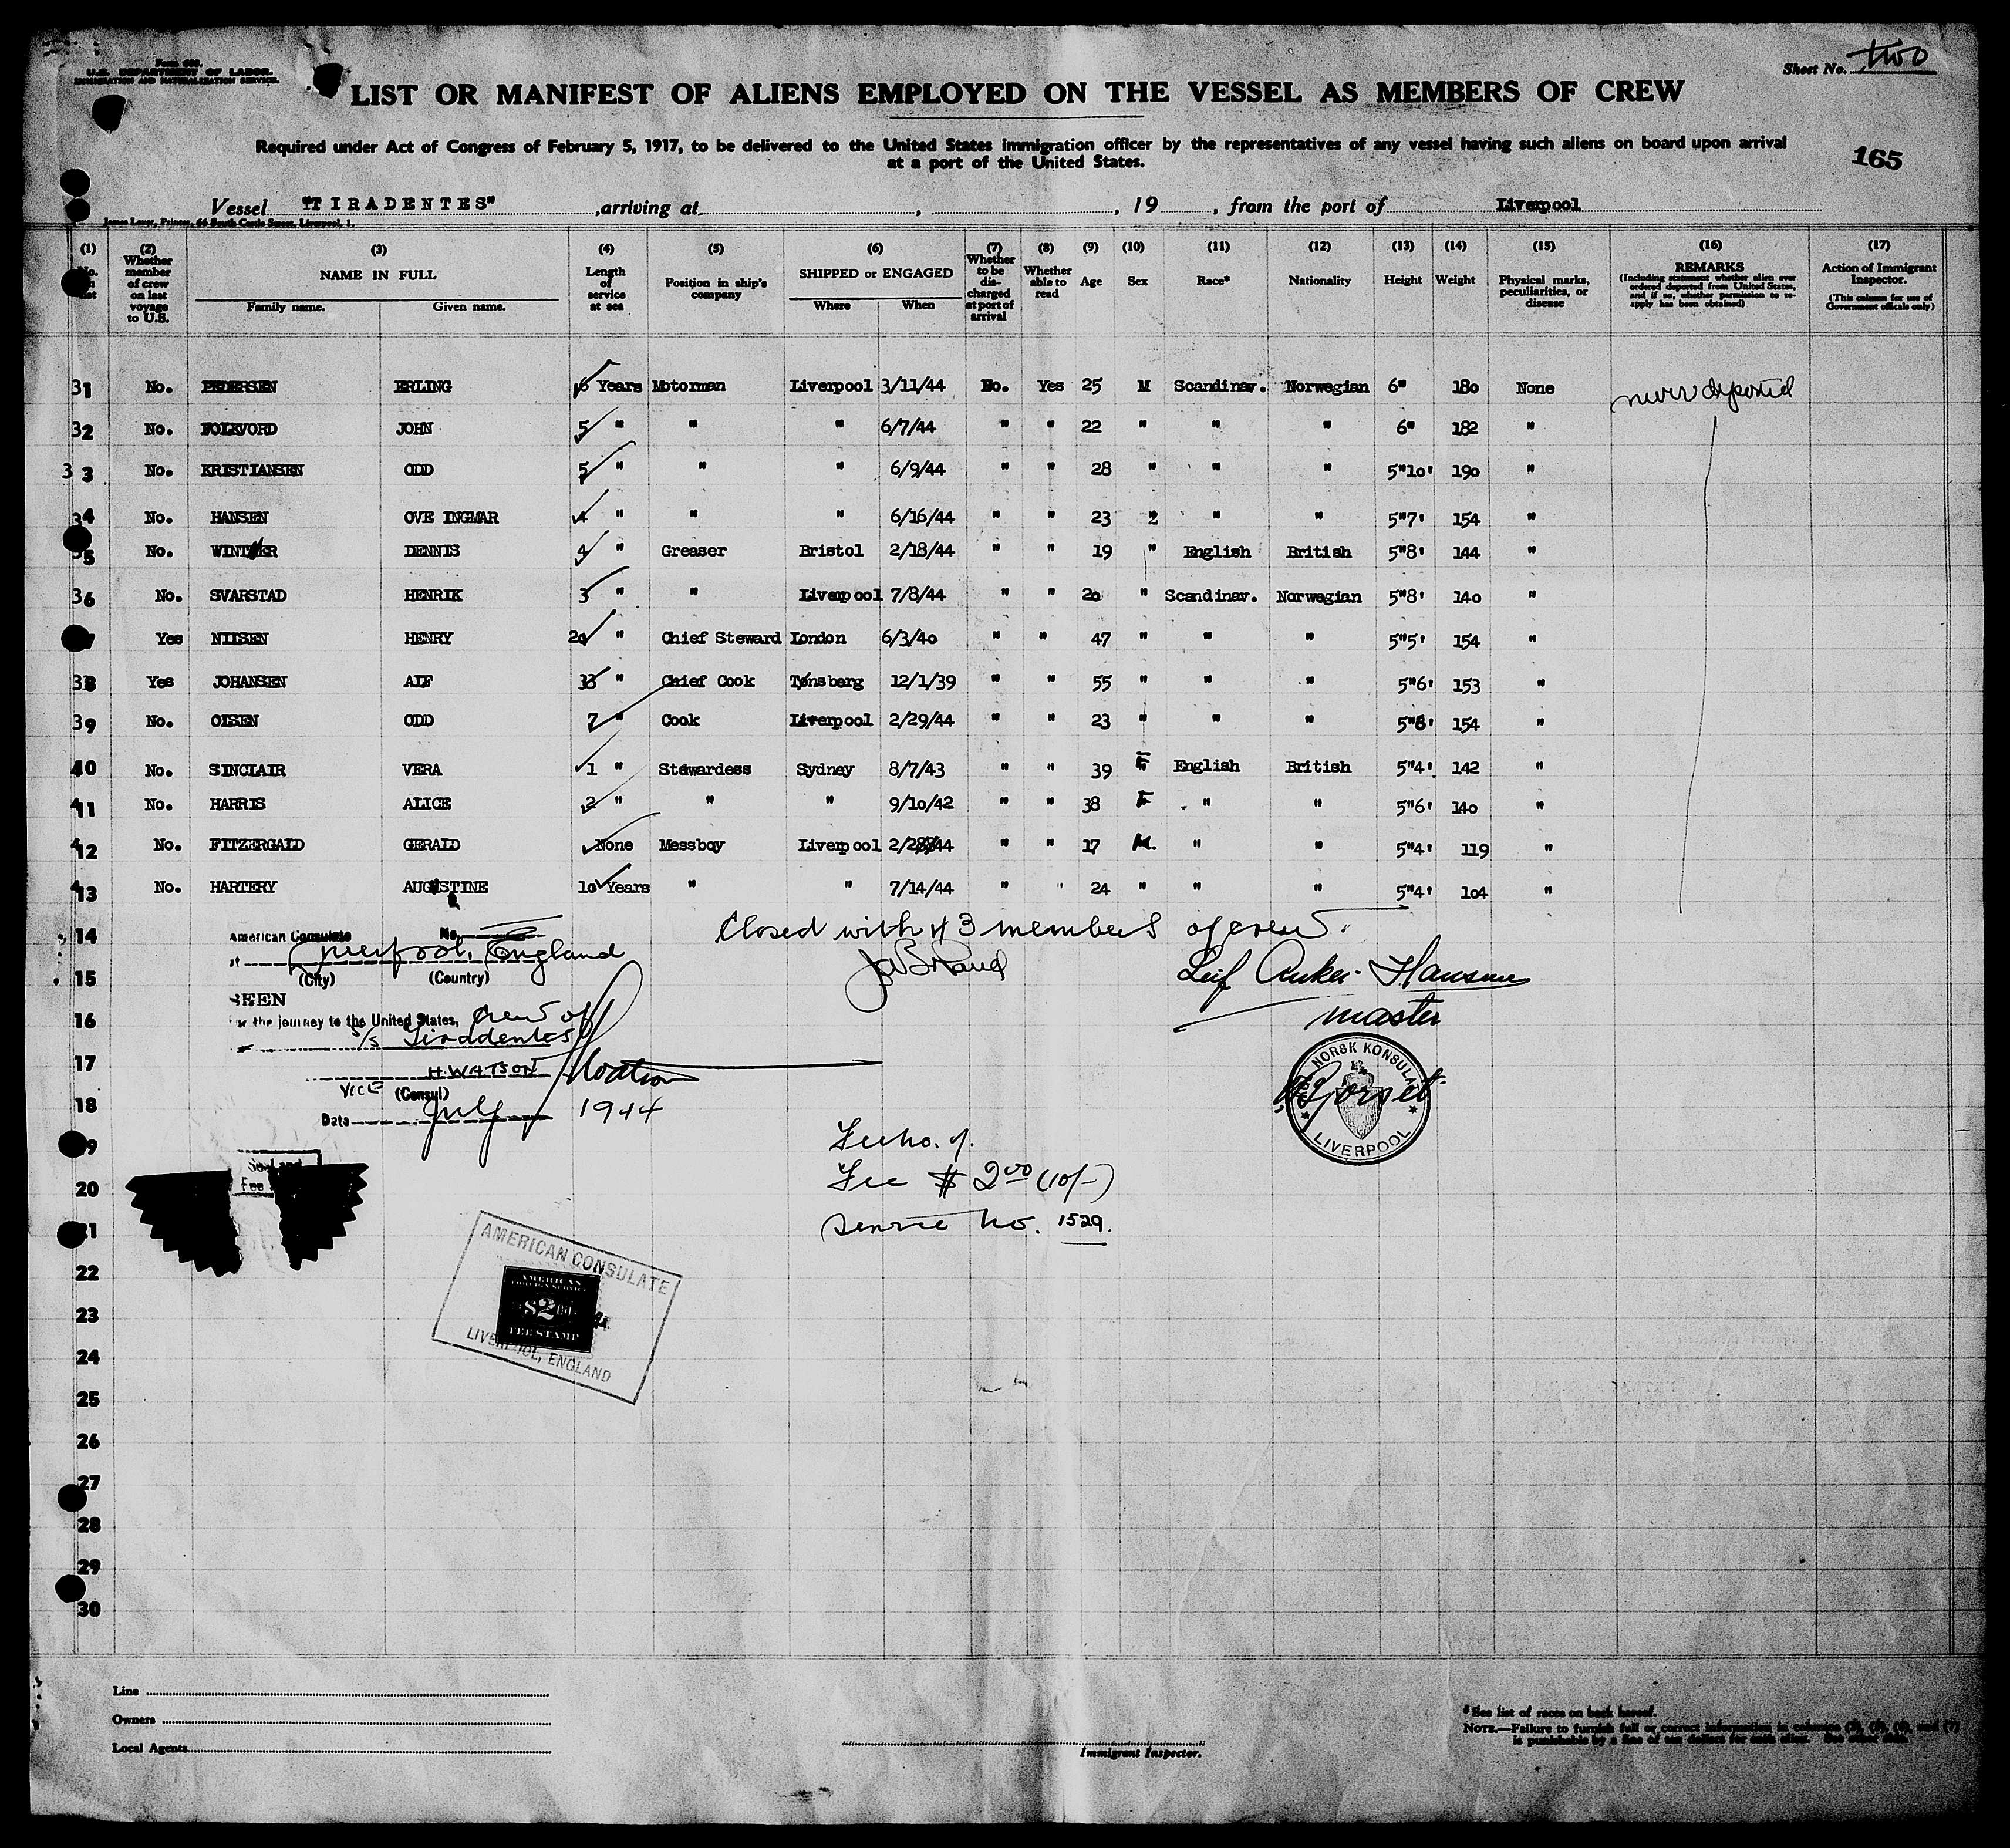 Form 680.
U.S. DEPARTMENT OF LABOR.
IMMIGRATION AND NATURALIZATION SERVICE.
Sheet No. two
LIST OR MANIFEST OF ALIENS EMPLOYED ON THE VESSEL AS MEMBERS OF CREW
Required under Act of Congress of February 5, 1917, to be delivered to the United States immigration officer by the representatives of any vessel having such aliens on board upon arrival
at a port of the United States.
165
Vessel "TIRADENTES" ,arriving at , , 19 , from the port of Liverpool
James Laver, Printer, 66 South Castle Street, Liverpool, 1.
(1) (2) (3) (4) (5) (6) (7) (8) (9) (10) (11) (12) (13) (14) (15) (16) (17)
No. Whether member of crew on last voyage to U.S. NAME IN FULL Family name. Given name. Length of service at sea Position in ship's company SHIPPED or ENGAGED Where When Whether to be discharged at port of arrival Whether able to read Age Sex Race* Nationality Height Weight Physical marks, peculiarities, or disease REMARKS (Including statement whether alien ever ordered deported from United States, and if so, whether permission to re-apply has been obtained) Action of Immigrant Inspector. (This column for use of Government officials only)
31 No. PEDERSEN ERLING Years Motorman Liverpool 3/11/44 No. Yes 25 M Scandinav. Norwegian 6" 180 None never deported
32 No. FOLKVORD JOHN 5 " " " 6/7/44 " " 22 " " " 6" 182 "
33 No. KRISTIANSEN ODD 5 " " " 6/9/44 " " 28 " " " 5"10' 190 "
34 No. HANSEN OVE INGMAR 4 " " " 6/16/44 " " 23 " " " 5"7' 154 "
35 No. WINTER DENNIS 4 " Greaser Bristol 2/18/44 " " 19 " English British 5"8' 144 "
36 No. SVARSTAD HENRIK 3 " " Liverpool 7/8/44 " " 20 " Scandinav. Norwegian 5"8' 140 "
Yes NILSEN HENRY " Chief Steward London 6/3/40 " " 47 " " " 5"5' 154 "
38 Yes JOHANSEN ALF 33 " Chief Cook Tønsberg 12/1/39 " " 55 " " " 5"6' 153 "
39 No. OLSEN ODD 7 " Cook Liverpool 2/29/44 " " 23 " " " 5"8' 154 "
40 No. SINCLAIR VERA 1 " Stewardess Sydney 8/7/43 " " 39 F English British 5"4' 142 "
411 No. HARRIS ALICE 2 " " " 9/10/42 " " 38 F " " 5"6' 140 "
412 No. FITZERGALD GERALD None Messboy Liverpool " " 17 M. " " 5"4' 119 "
413 No. HARTERY AUGUSTINE 10 Years " " 7/14/44 " " 24 " " " 5"4' 104 "
14 American Consulate No. Closed with 43 members of crew.
at Liverpool, England
15 (City) (Country) Leif Anker-Hansen
SEEN
16 For the journey to the United States, Crew of master
s/s Tiradentes
17 H. WATSON HWatson NORSK KONSULAT
VICE (Consul)
18 Date July 1944 LIVERPOOL
19
20 Fee $ 2.00 (10/-)
21 Service No. 1529.
AMERICAN CONSULATE
22
AMERICAN
FOREIGN SERVICE
23 $2
FEE STAMP
LIVERPOOL, ENGLAND
24
25
26
27
28
29
30
Line
Owners
Local Agents
Immigrant Inspector.
* See list of races on back hereof.
NOTE.—Failure to furnish full or correct information in columns (3), (5), (6), and (7)
is punishable by a fine of ten dollars for each alien. See other side.